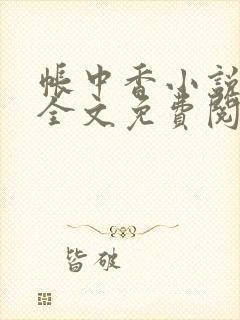 帳中香小說
全文免費閱
皆破